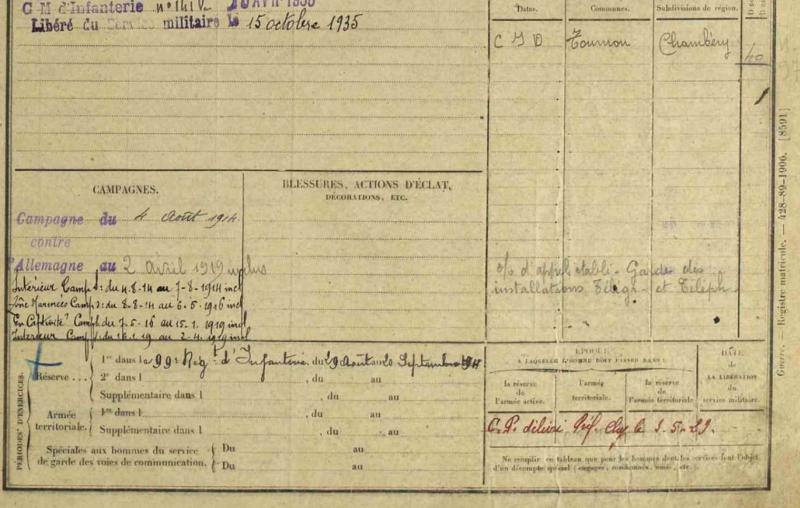 C M d'Infanterie n°
Libéré du Service militaire le 15 octobre 1935
Dates.
Communes.
Subdivisions de région.
Tournon
Chambéry
CAMPAGNES.
BLESSURES, ACTIONS D'ÉCLAT,
DÉCORATIONS, ETC.
Campagne du 4 Août 1914
contre
l'Allemagne au 2 avril 1919 inclus
Intérieur Camp du 4-8-14 au 7-8-1914 incl
Zône des Armées Camp du 8-8-14 au 6-5-1916 incl
En Captivité Camp du 7-5-16 au 15-1-1919 incl
Intérieur Camp du 16-1-19 au 2-4-1919 incl
o/s d'appel établi. Garde des
installations Télég. et Téléph.
PÉRIODES D'EXERCICES.
Réserve...
1re dans le 99e Rég t d'Infanterie, du 29 Août au 20 Septembre 1911
2e dans l , du au
Supplémentaire dans l , du au
Armée
territoriale.
1re dans l , du au
Supplémentaire dans l , du au
Spéciales aux hommes du service
de garde des voies de communication.
Du au
Du au
ÉPOQUE
À LAQUELLE L'HOMME DOIT PASSER DANS :
la réserve
de
l'armée active.
l'armée
territoriale.
la réserve
de
l'armée territoriale
DATE
de
LA LIBÉRATION
du
service militaire.
C.P. délivré Préf. le 3-5-29.
Ne remplir ce tableau que pour les hommes dont les services font l'objet
d'un décompte spécial (engagés, condamnés, omis, etc.
Guerre. — Registre matricule. — 428-89-1906. [8591]